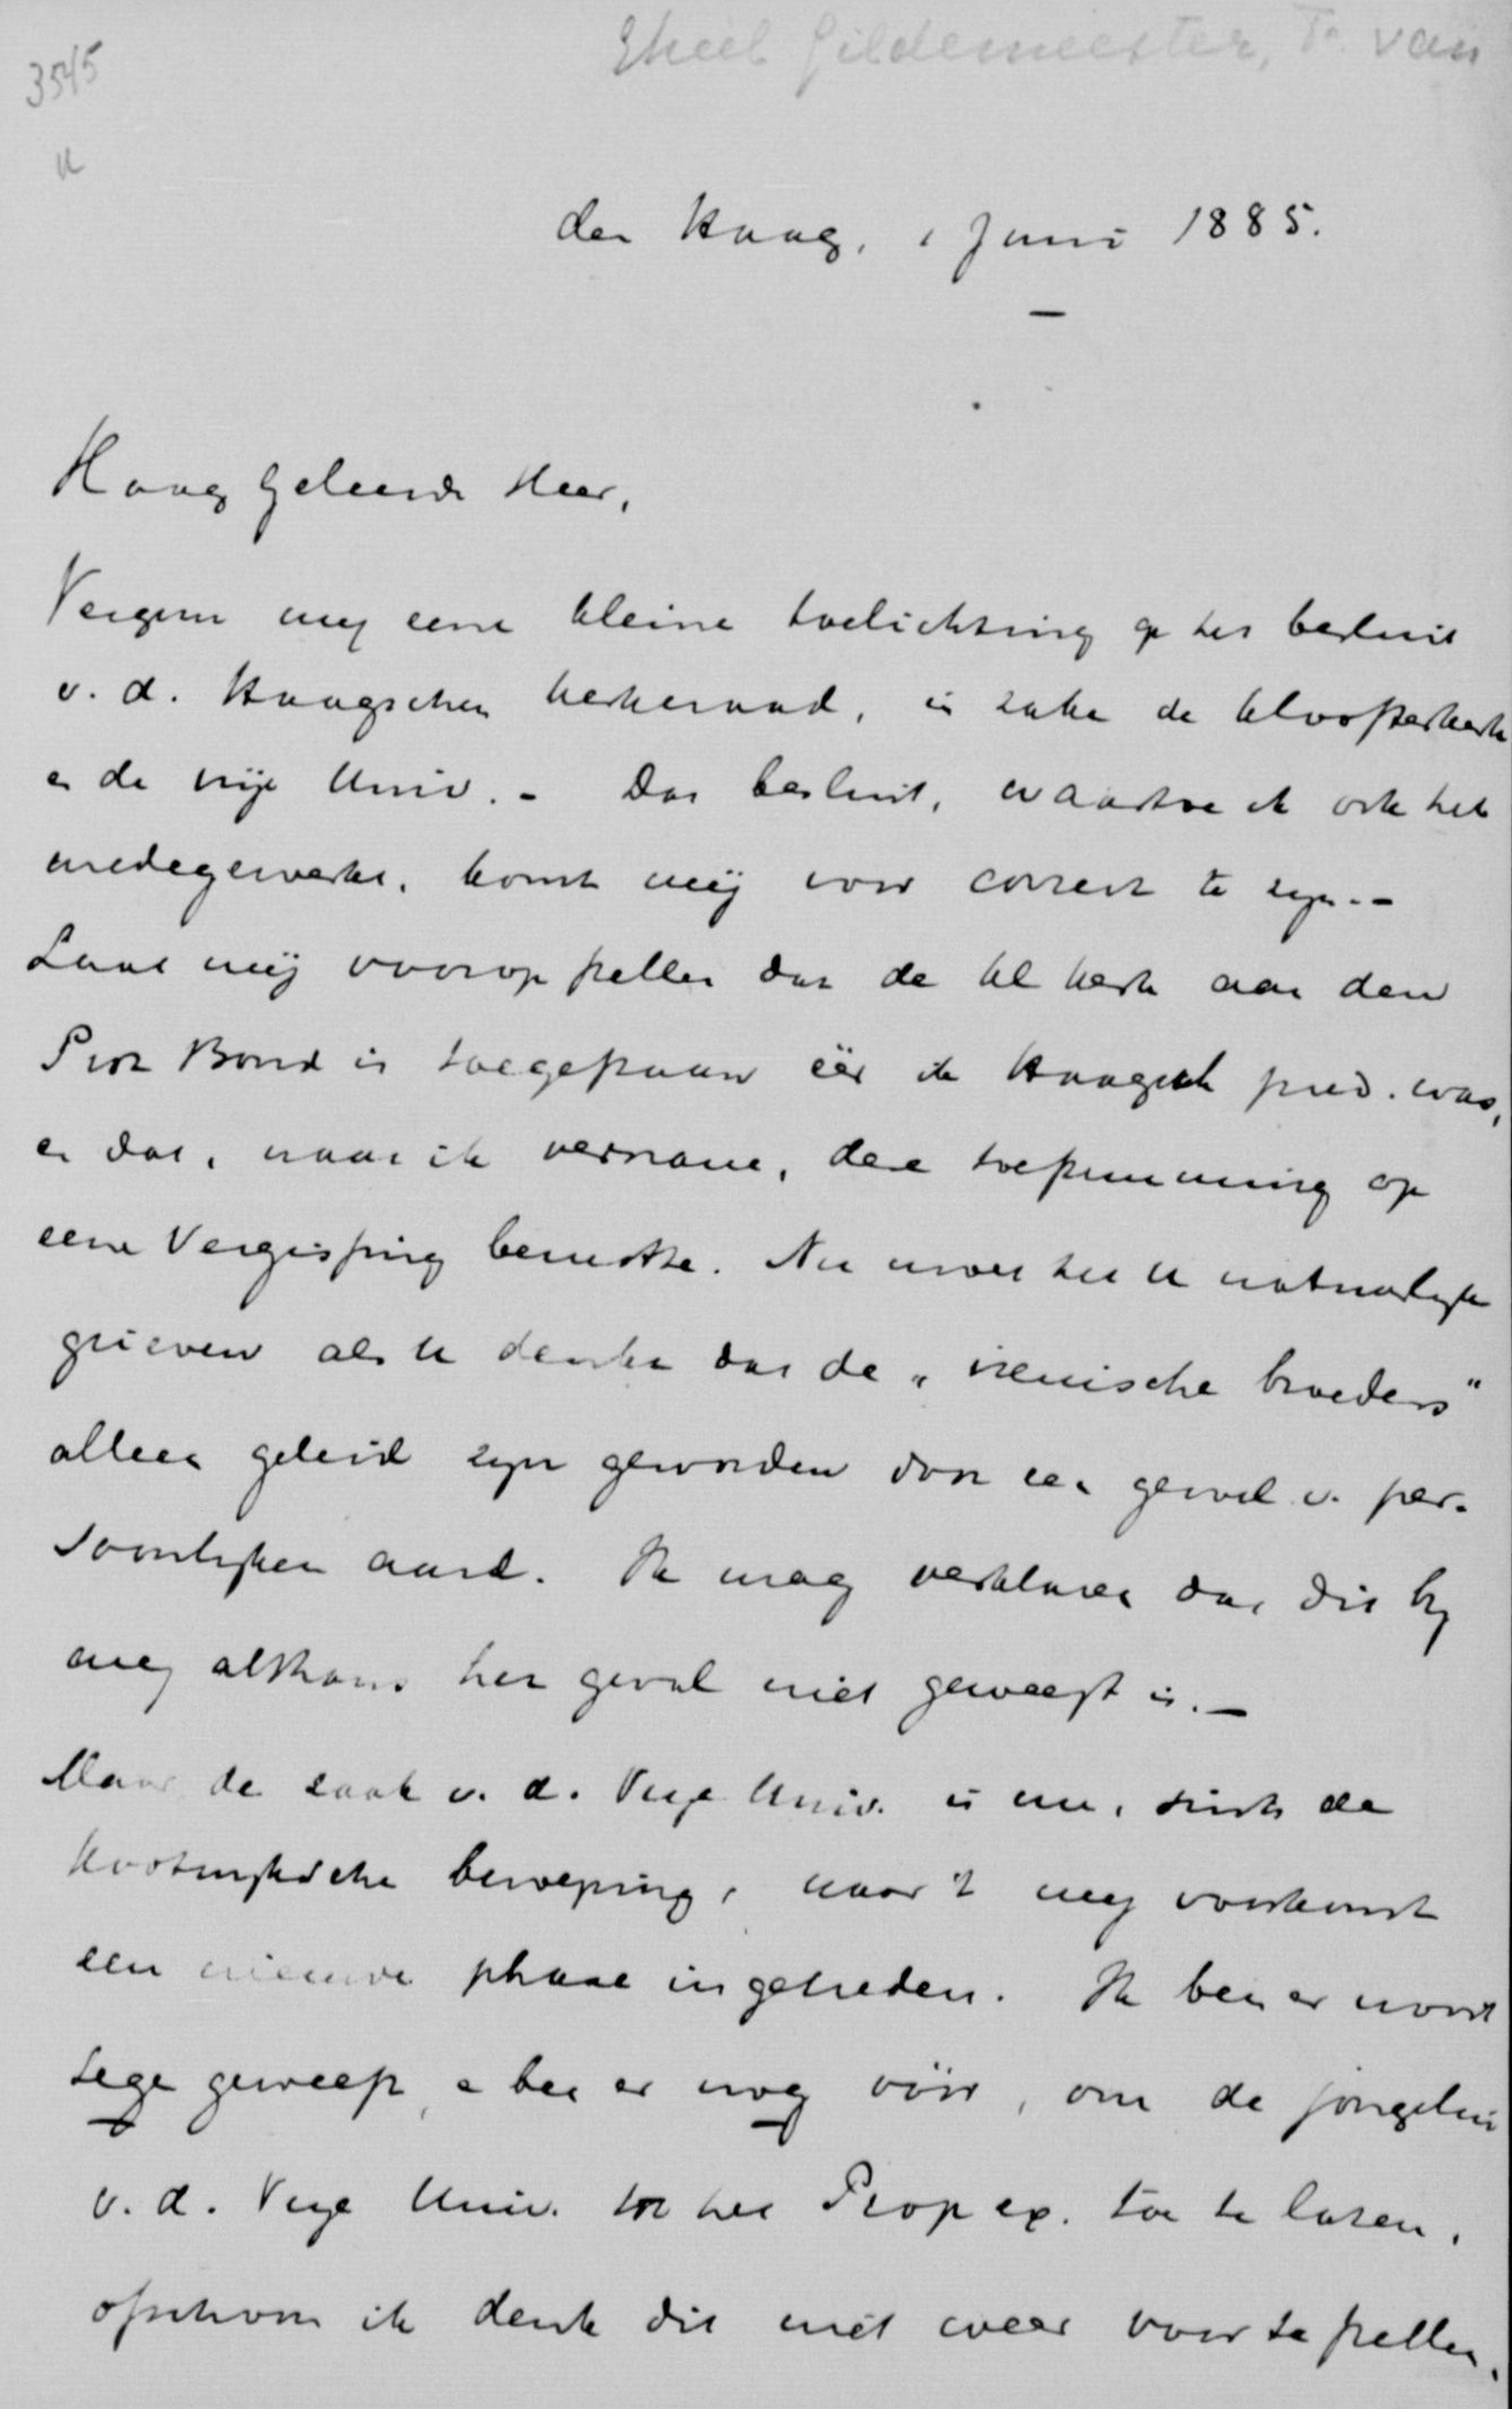 Gheel Gildemeester, F. van
3545
den Haag, 1 Juni 1885.
Hoog Geleerde Heer,
Vergun mij eene kleine toelichting op het besluit
v. d. Haagschen kerkeraad, in zake de Kloosterkerk
en de vrije Univ. - Dat besluit, waartoe ik ook heb
medegewerkt, komt mij voor correct te zijn. -
Laat mij voorop stellen dat de Kl kerk aan den
Prot Bond is toegestaan eer ik Haagsch pred. was,
en dat, naar ik vernam, deze toestemming op
eene Vergissing berustte. Nu moet het U natuurlijk
grieven als U denkt dat de "irenische broeders"
alleen geleid zijn geworden door een gevoel v. per-
soonlijken aard. Ik mag verklaren dat dit bij
mij althans het geval niet geweest is. -
Maar de zaak v. d. Vrije Univ. is nu, sinds de
Kootwijksche beweging, naar 't mij voorkomt
een nieuwe phase ingetreden. Ik ben er nooit
tegen geweest, en ben er nog vóór, om de jongelui
v. d. Vrije Univ. tot het Prop ex. toe te laten,
ofschoon ik denk dit niet weer voor te stellen.